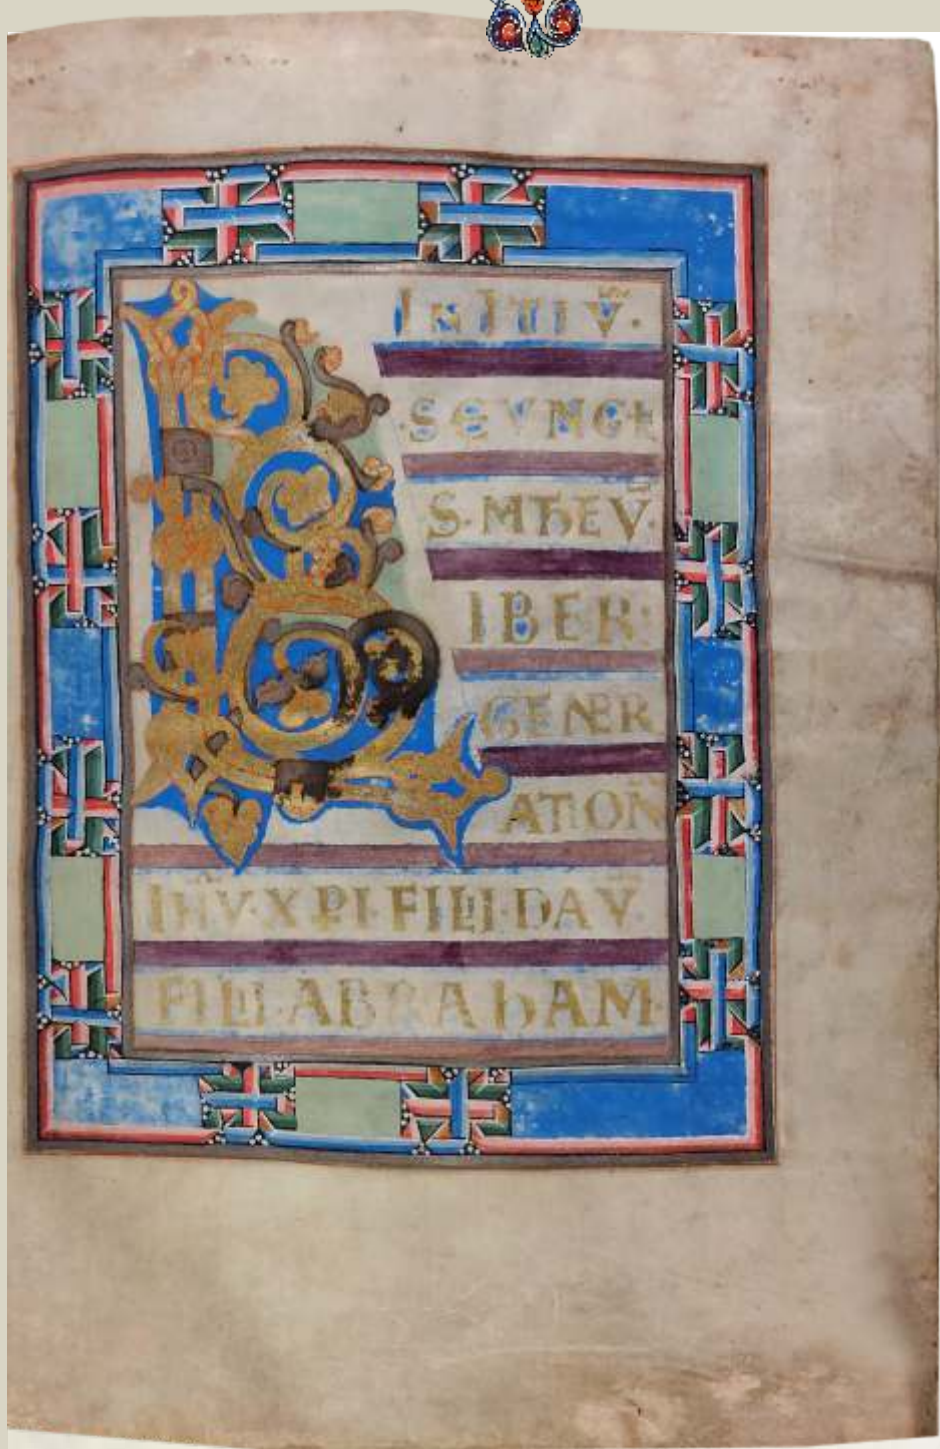 INITIV̄.
·S EVNGŁ
S·MTHEV̄·
LIBER·
GENER
ATION
IHV̄·XPI·FILII·DAV̄
FILII·ABRAHAM·